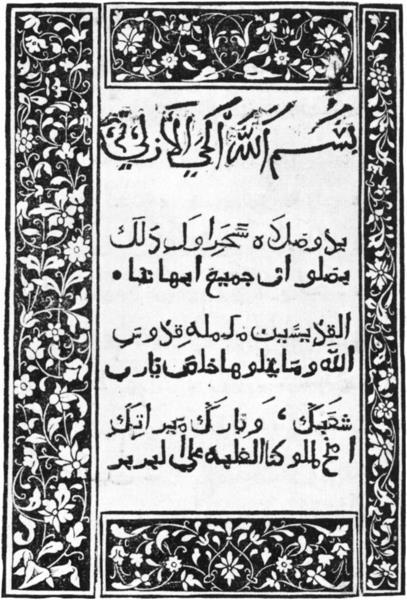 بسم الله الحي الازلي
بدو صلاة سحر اول ذلك
بصلوات جميع ابهاتنا •
القديسين مكمله قدوس
الله وما يتلوها خلص يارب
شعبك، وبارك ميراتك
لملوكنا الغلبه على لبربر